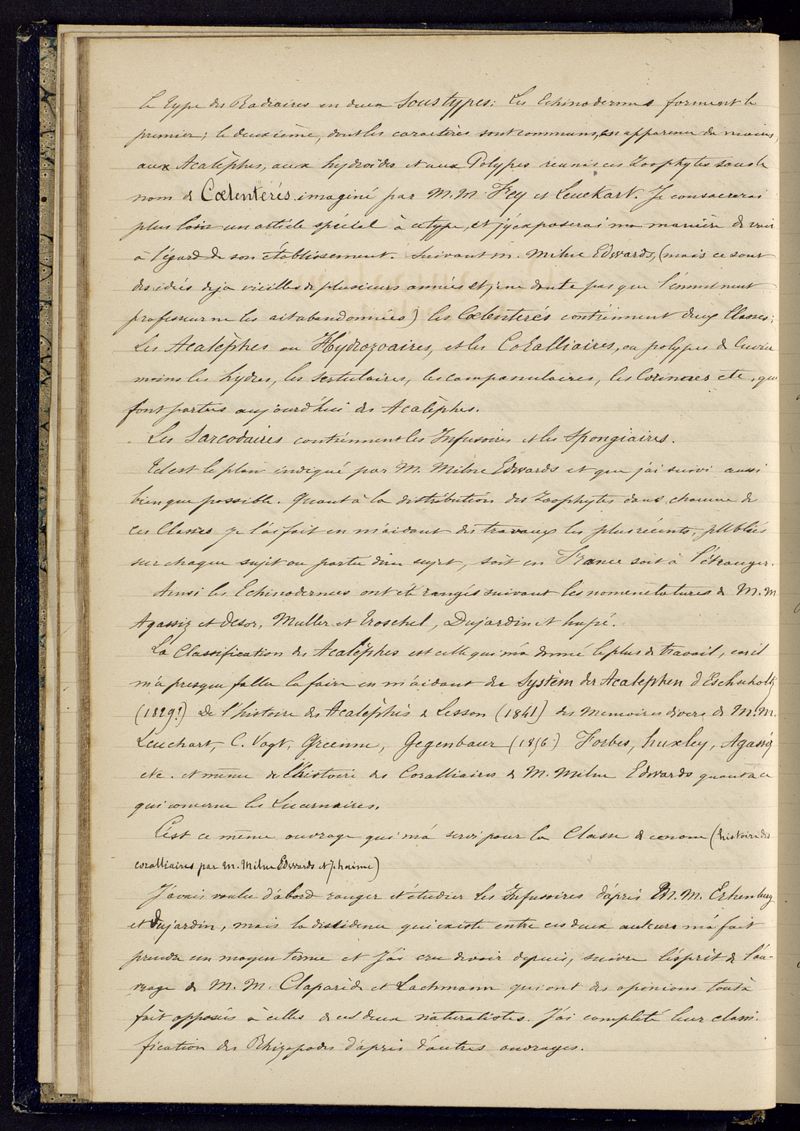 le type des Radiaires en deux Sous types: Les Echinodermes forment le
premier; le deuxième, dont les caractères sont communs, en apparence du moins,
aux Acalèphes, aux hydroïdes et aux Polypes réunis ces Zoophytes sous le
nom de Cœlentérés imaginé par M.M. Frey et Leuckart. Je consacrerai
plus loin un article spécial à ce type, et j'y exposerai ma manière de voir
à l'égard de son établissement. Suivant M. Milne Edwards, (mais ce sont
des idées déjà vieilles de plusieurs années et je ne doute pas que l'éminent
professeur ne les ait abandonnées) les Cœlenterés contiennent deux Classes:
Les Acalèphes ou Hydrozoaires, et les Coralliaires, ou polypes de Cuvier
moins les hydres, les sertulaires, les campanulaires, les Corinnes etc, qui
font parties aujourd'hui des Acalèphes.
Les Sarcodaires contiennent les Infusoires et les Spongiaires.
Tel est le plan indiqué par M. Milne Edwards et que j'ai suivi aussi
bien que possible. Quant à la distribution des Zoophytes dans chacune de
ces Classes je l'ai fait en m'aidant des travaux les plus récents, publiés
sur chaque sujet ou partie d'un sujet, soit en France soit à l'étranger.
Ainsi les Echinodermes ont été rangés suivant les nomenclatures de M.M
Agassiz et Desor, Muller et Troschel, Dujardin et hupé.
La Classification des Acalèphes est celle qui m'a donné le plus de travail, car il
m'a presque fallu la faire en m'aidant du System der Acalephen d'Eschscholtz
(1829!) De l'histoire des Acalèphes de Lesson (1841) des Memoires divers de M.M.
Leuckart, C. Vogt, Greenne, Gegenbaur (1856) Forbes, huxley, Agassiz
etc. et même de l'histoire des Coralliaires de M. Milne Edwards quant à ce
qui concerne les Lucernaires.
C'est ce même ouvrage qui m'a servi pour la Classe de ce nom (histoire des
coralliaires par M. Milne Edwards et J. haime)
J'avais voulu d'abord ranger et étudier Les Infusoires d'après M.M. Erhenberg
et Dujardin, mais la dissidence qui existe entre ces deux auteurs m'a fait
prendre un moyen terme et J'ai cru devoir depuis, suivre l'esprit de l'ou-
vrage de M.M. Claparède et Lachmann qui ont des opinions tout à
fait opposées à celles de ces deux naturalistes. J'ai complété leur classi-
fication des Rhizopodes d'après d'autres ouvrages.